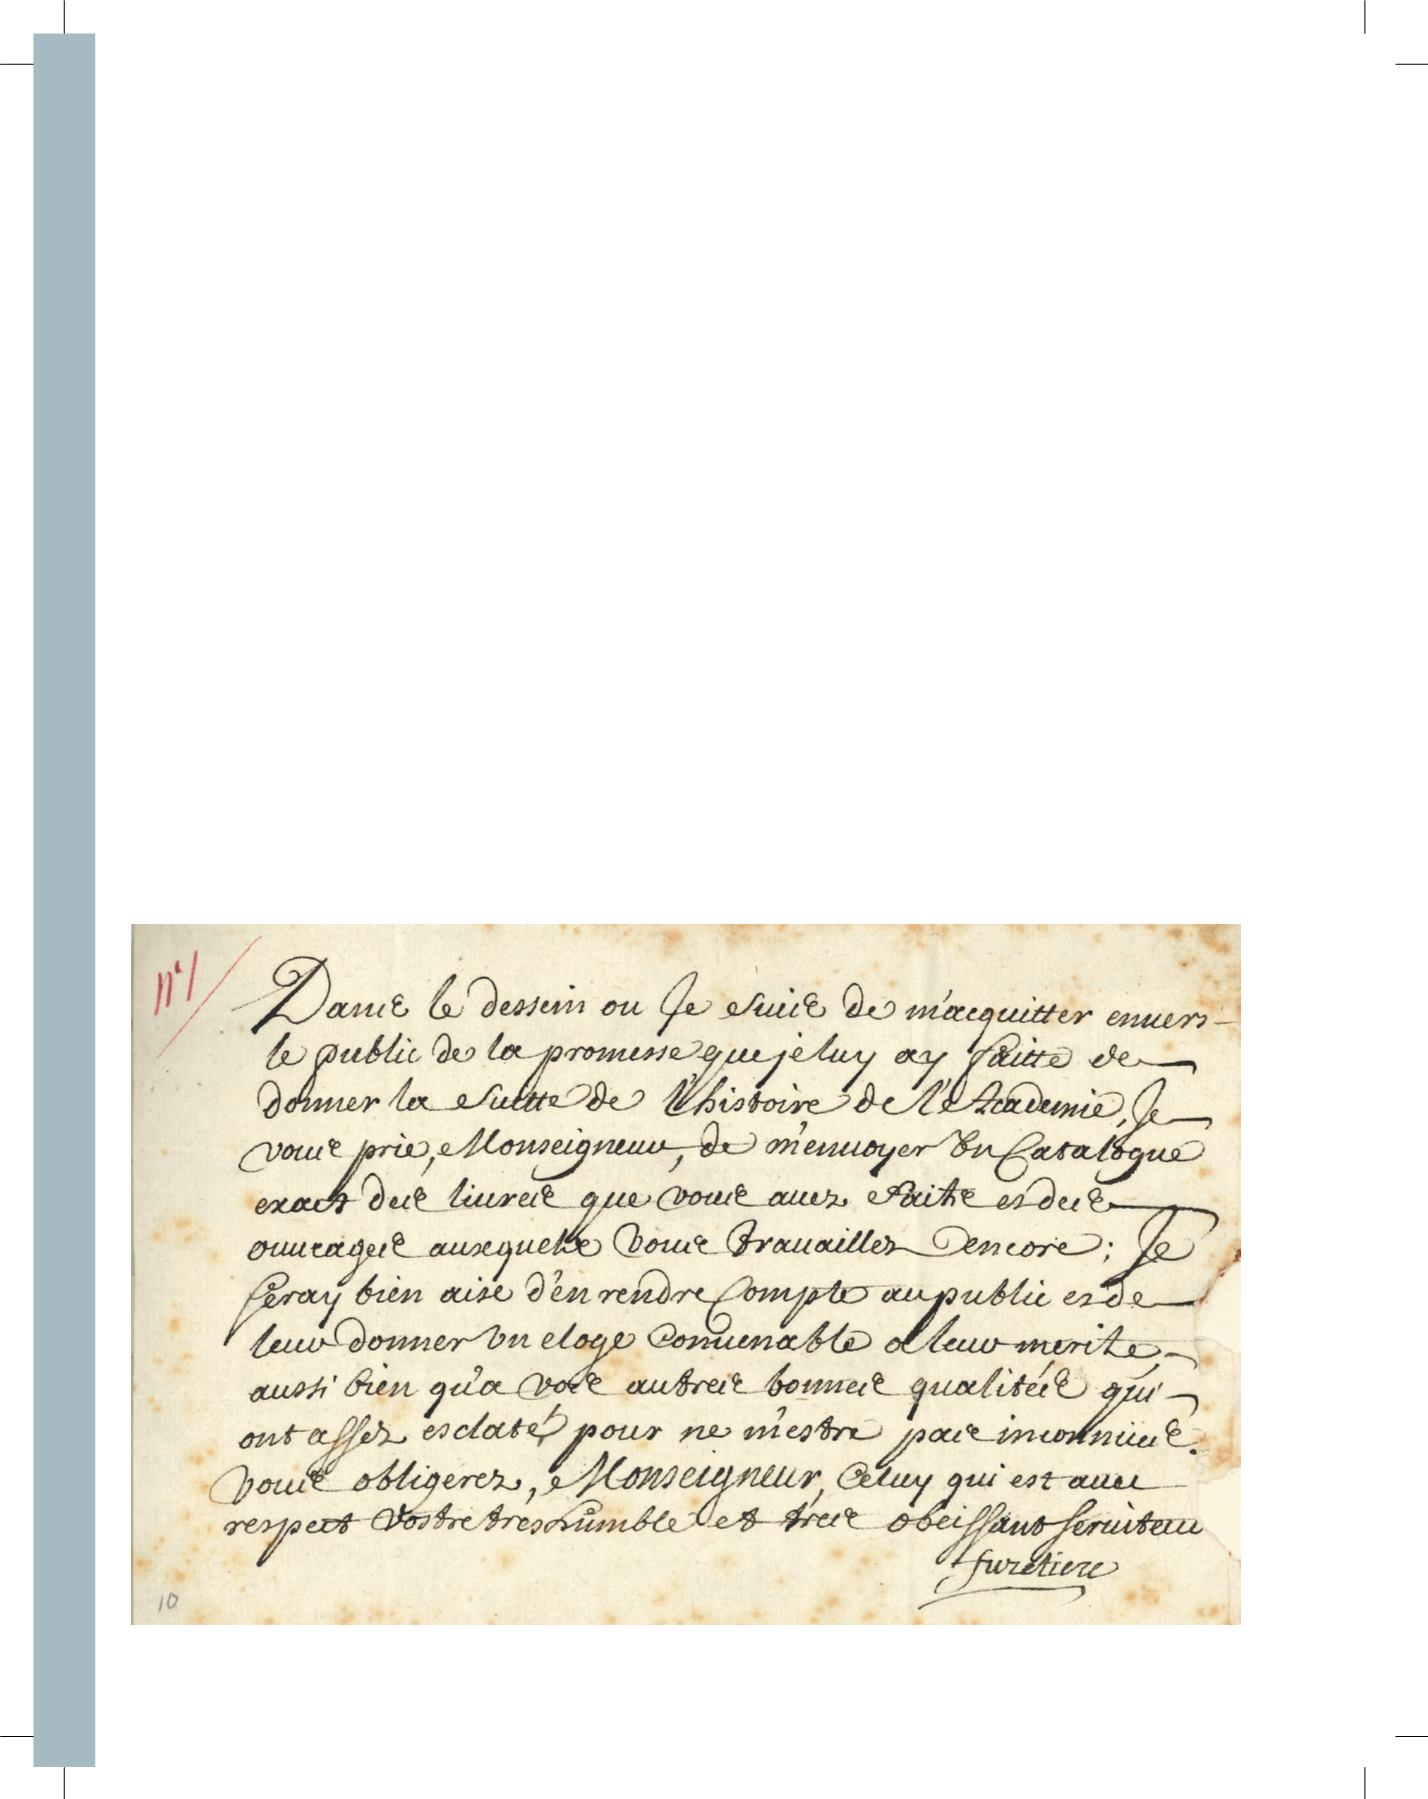 n°1
Dans le dessein ou Je suis de m'acquitter enuers
le public de la promesse que je luy ay faitte de
donner la suitte de l'histoire de l'Academie, Je
vous prie, Monseigneur, de m'enuoyer vn Catalogue
exact des liures que vous auez faits et des
ouurages ausquels vous trauaillez encore ; Je
seray bien aise d'en rendre Compte au public et de
leur donner vn eloge conuenable a leur merite,
aussi bien qu'a vos autres bonnes qualités qui
ont assez esclaté pour ne m'estre pas inconnues.
vous obligerez, Monseigneur, Celuy qui est auec
respect vostre tres humble et tres obeissant seruiteur
furetiere
10